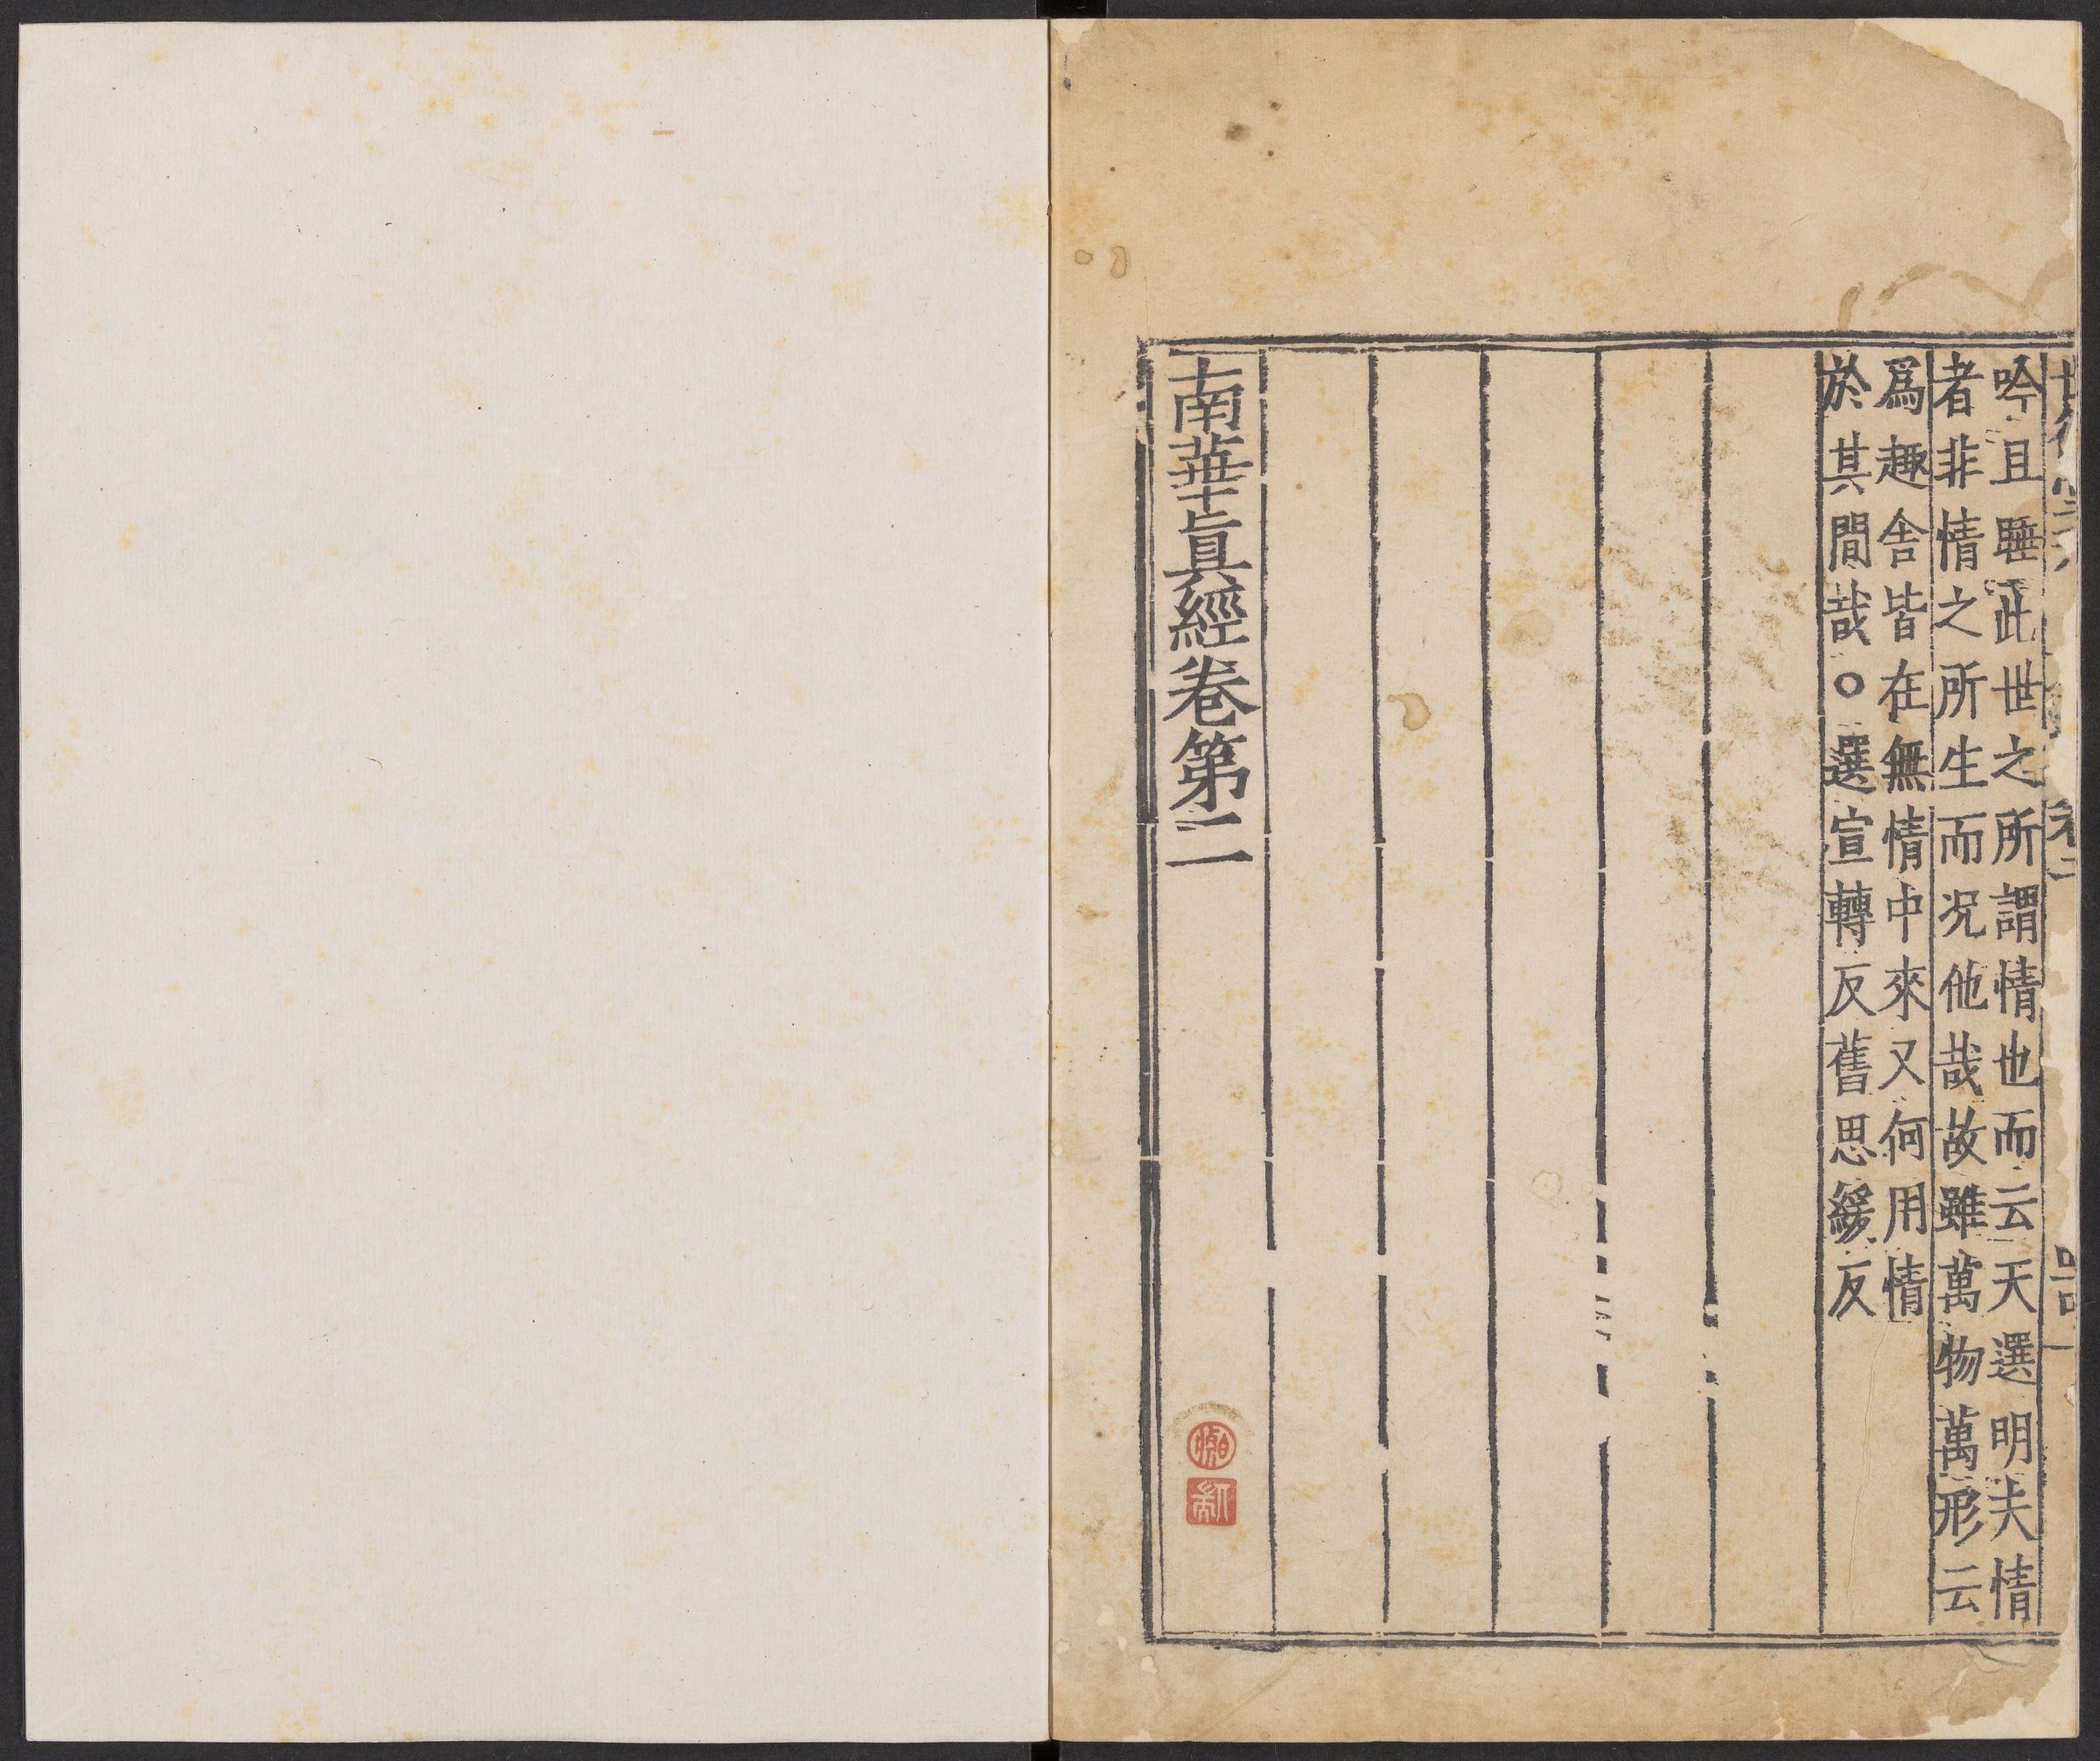 吟且睡此世之所謂情也而云天選明夫情
者非情之所生而况他哉故雖萬物萬形云
爲趣舍皆在無情中來又何用情
於其間哉○選宣轉反舊思緩反
南華眞經卷第二